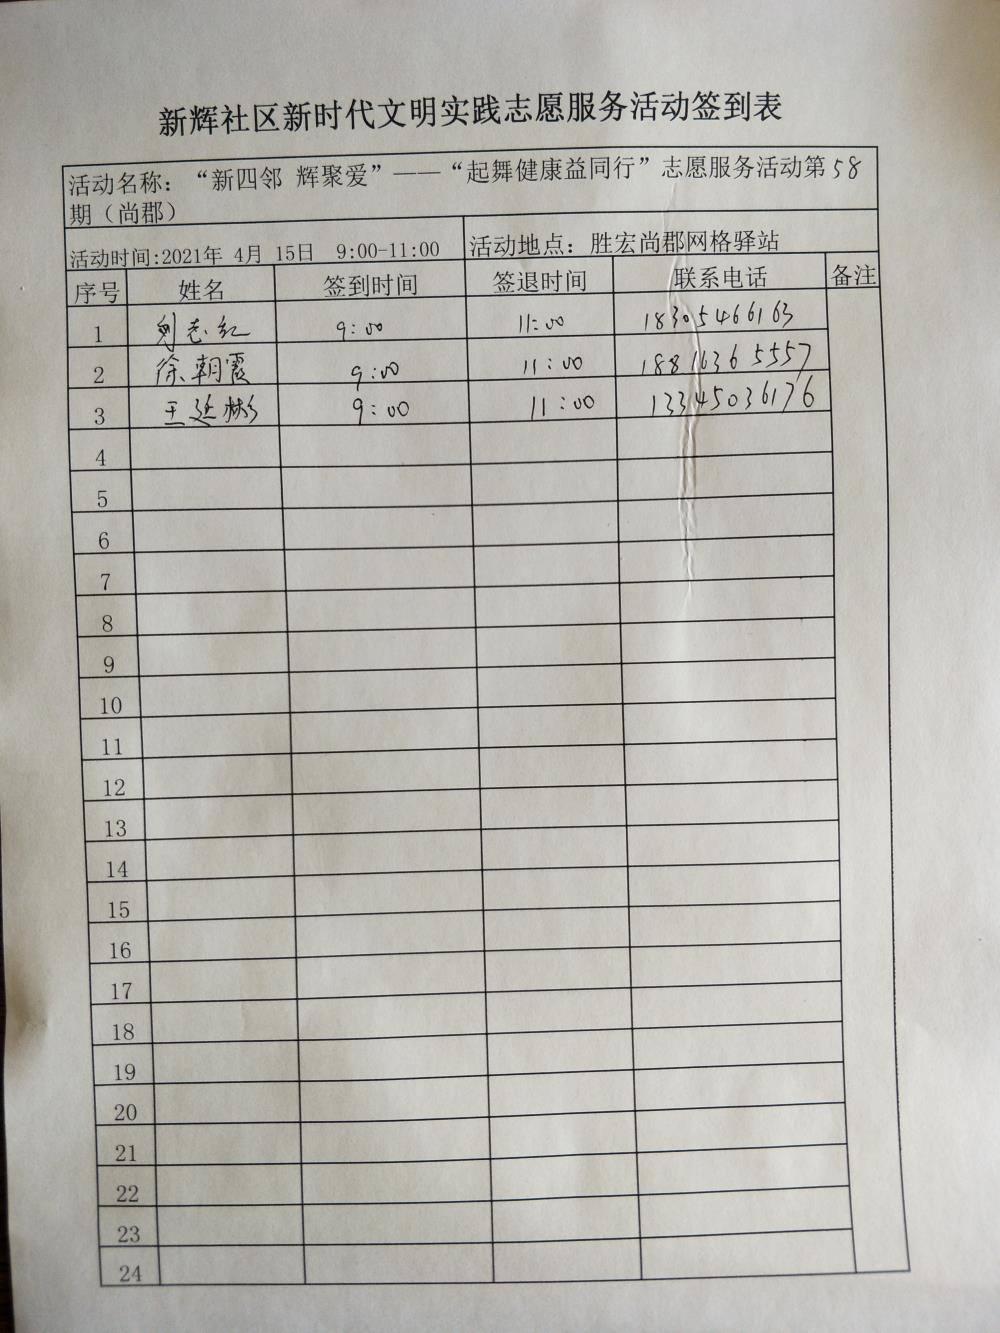 新辉社区新时代文明实践志愿服务活动签到表
活动名称：“新四邻 辉聚爱”——“起舞健康益同行”志愿服务活动第58
期（尚郡）
活动时间:2021年 4月 15日 9:00-11:00 活动地点：胜宏尚郡网格驿站
序号 姓名 签到时间 签退时间 联系电话 备注
1 刘志红 9:00 11:00 18305466163
2 徐朝霞 9:00 11:00 18816365557
3 王延彬 9:00 11:00 13345036176
4
5
6
7
8
9
10
11
12
13
14
15
16
17
18
19
20
21
22
23
24